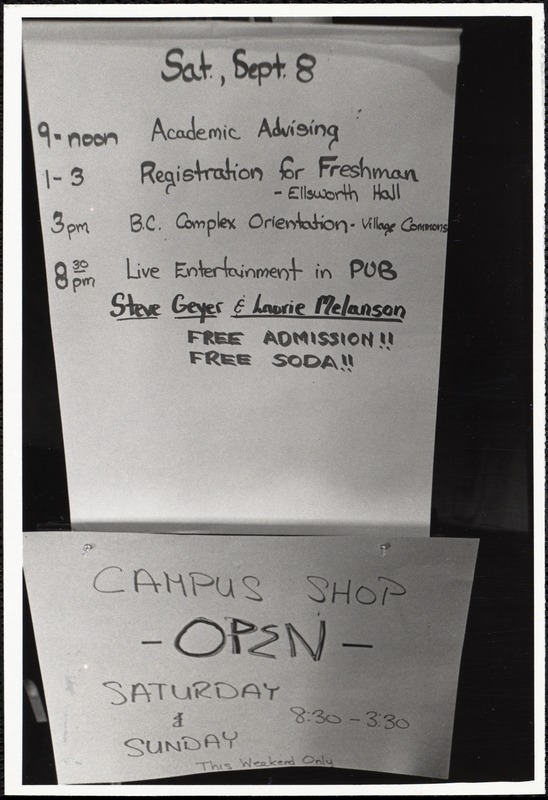 Sat., Sept. 8
9-noon Academic Advising
1-3 Registration for Freshman
- Ellsworth Hall
3pm B.C. Complex Orientation - Village Commons
8 30 pm Live Entertainment in PUB
Steve Geyer & Laurie Melanson
FREE ADMISSION!!
FREE SODA!!
CAMPUS SHOP
- OPEN -
SATURDAY
& 8:30-3:30
SUNDAY
This Weekend Only